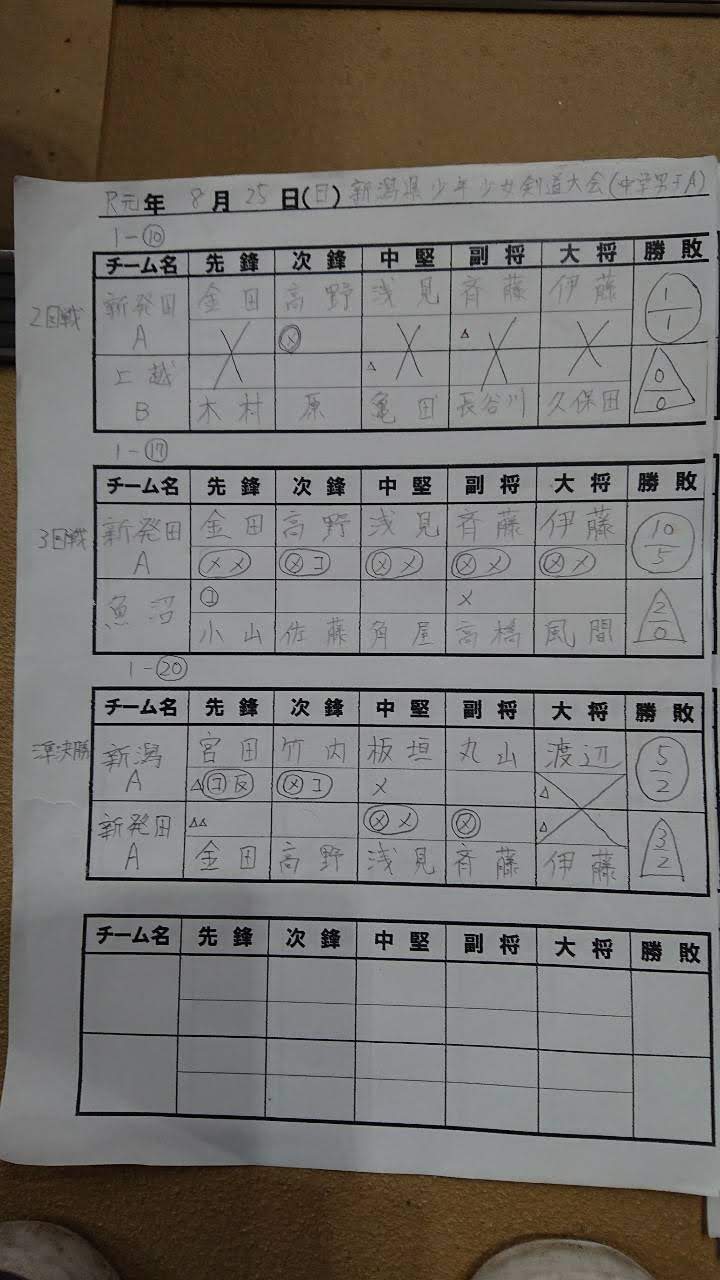 R元年 8月25日(日) 新潟県少年少女剣道大会(中学男子A)
1-⑩
チーム名 先鋒 次鋒 中堅 副将 大将 勝敗
2回戦 新発田A 金田 高野 浅見 斉藤 伊藤 1/1
ⓧ △
△
上越B 木村 原 亀田 長谷川 久保田 0/0
1-⑰
チーム名 先鋒 次鋒 中堅 副将 大将 勝敗
3回戦 新発田A 金田 高野 浅見 斉藤 伊藤 10/5
メメ ⓧコ ⓧメ ⓧメ ⓧメ
㋙ メ
魚沼 小山 佐藤 角屋 高橋 風間 2/0
1-⑳
チーム名 先鋒 次鋒 中堅 副将 大将 勝敗
準決勝 新潟A 宮田 竹内 板垣 丸山 渡辺 5/2
△㋙反 ⓧコ メ △
△△ ⓧメ ⓧ △
新発田A 金田 高野 浅見 斉藤 伊藤 3/2
チーム名 先鋒 次鋒 中堅 副将 大将 勝敗